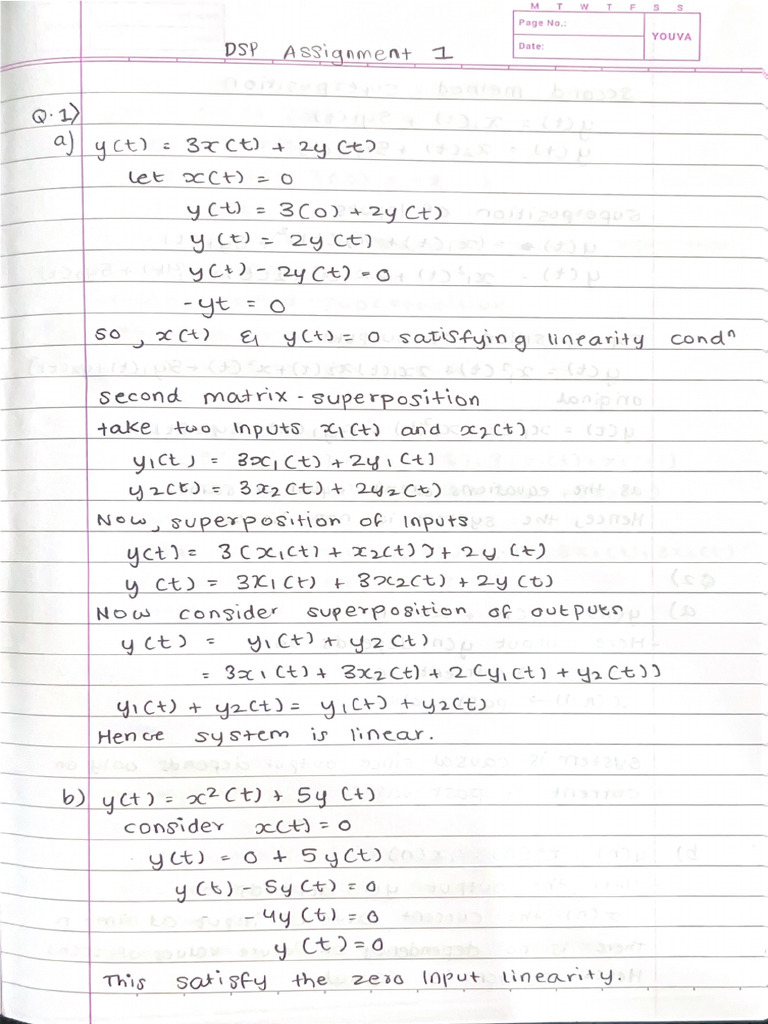 M T W T F S S
Page No.:
Date:
YOUVA
DSP Assignment 1
Q.1)
a) y(t) = 3x(t) + 2y(t)
let x(t) = 0
y(t) = 3(0) + 2y(t)
y(t) = 2y(t)
y(t) - 2y(t) = 0
-yt = 0
so, x(t) & y(t) = 0 satisfying linearity condⁿ
second matrix - superposition
take two inputs x1(t) and x2(t)
y1(t) = 3x1(t) + 2y1(t)
y2(t) = 3x2(t) + 2y2(t)
Now, superposition of inputs
y(t) = 3(x1(t) + x2(t)) + 2y(t)
y(t) = 3x1(t) + 3x2(t) + 2y(t)
Now consider superposition of outputs
y(t) = y1(t) + y2(t)
= 3x1(t) + 3x2(t) + 2(y1(t) + y2(t))
y1(t) + y2(t) = y1(t) + y2(t)
Hence system is linear.
b) y(t) = x²(t) + 5y(t)
consider x(t) = 0
y(t) = 0 + 5y(t)
y(t) - 5y(t) = 0
- 4y(t) = 0
y(t) = 0
This satisfy the zero input linearity.